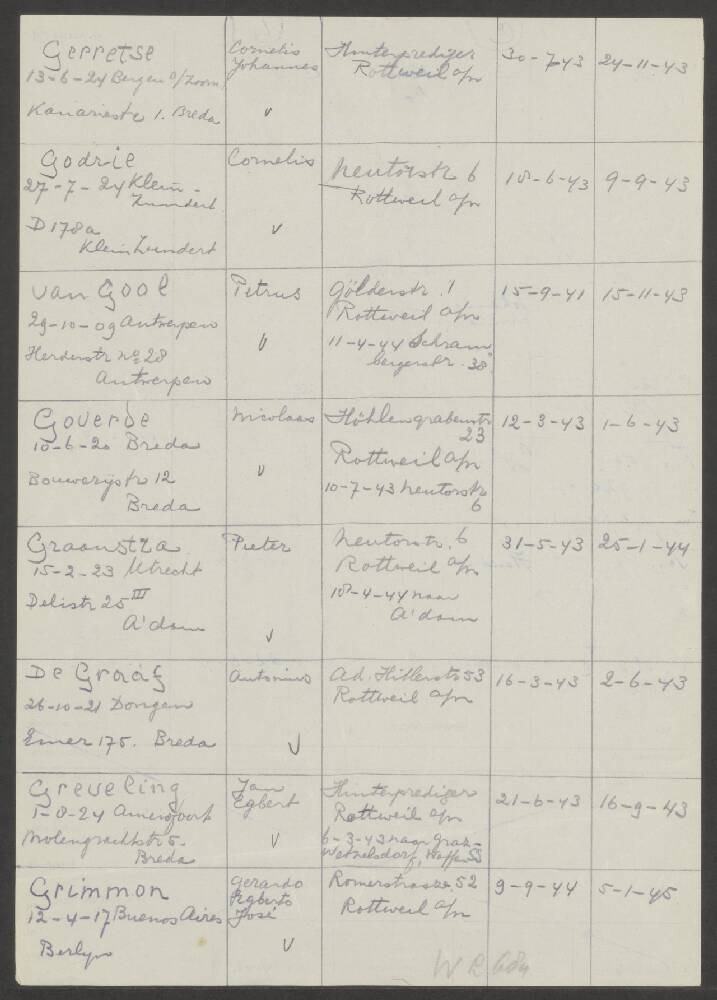 Gerretse
13-6-24 Bergen o/Zoom
Kanariestr 1. Breda
Cornelis
Johannes
v
Hinterprediger
Rottweil a/n
30-7-43
24-11-43
Godrie
27-7-24 Klein-
Zundert
D178a
Klein Zundert
Cornelis
v
Neutorstr 6
Rottweil a/n
18-6-43
9-9-43
van Gool
29-10-09 Antwerpen
Herderstr No 28
Antwerpen
Petrus
v
Gölderstr. 1
Rottweil a/n
11-4-44 Schram
bergerstr. 38
15-9-41
15-11-43
Goverde
10-6-20 Breda
Bouwerijstr 12
Breda
Nicolaas
v
Höhlengrabenstr
23
Rottweil a/n
10-7-43 Neutorstr
6
12-3-43
1-6-43
Graanstra
15-2-23 Utrecht
Delistr 25 III
A'dam
Pieter
v
Neutorstr. 6
Rottweil a/n
18-4-44 naar
A'dam
31-5-43
25-1-44
De Graaf
26-10-21 Dongen
Emer 175. Breda
Antonius
v
Ad. Hitlerstr 53
Rottweil a/n
16-3-43
2-6-43
Greveling
1-8-24 Amersfoort
Molengrachtstr 5.
Breda
Jan
Egbert
v
Hinterprediger
Rottweil a/n
6-3-43 naar Graz-
Wetzelsdorf, Waffen SS
21-6-43
16-9-43
Grimmon
12-4-17 Buenos Aires
Berlyn
Gerardo
Egberto
José
v
Romerstrasze. 52
Rottweil a/n
9-9-44
5-1-45